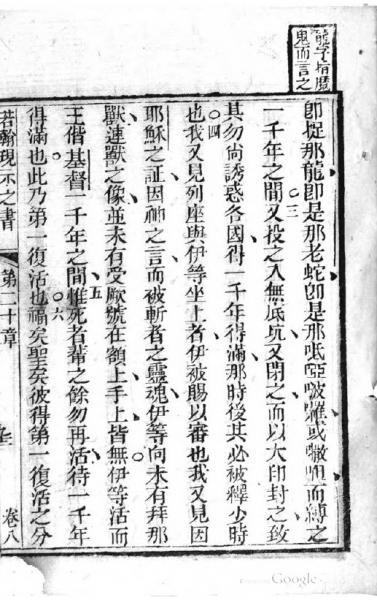 龍字指魔
鬼而言之
即捉那龍即是那老蛇即是那呧啞啵或呾而縛之
〇三
一千年之間又投之入無底坑又閉之而以大印封之致
其勿尚誘惑各國得一千年得滿那時後其必被釋少時
〇四
也我又見列座與伊等坐上者伊被賜以審也我又見因
耶穌之証因神之言而被斬者之靈魂伊等向未有拜那
獸連獸之像並未有受厥號在額上手上皆無伊等活而
〇五
王偕基督一千年之間惟死者輩之餘勿再活待一千年
〇六
得滿也此乃第一復活也福矣聖矣彼得第一復活之分
若翰現示之書 第二十章 卷八
Google